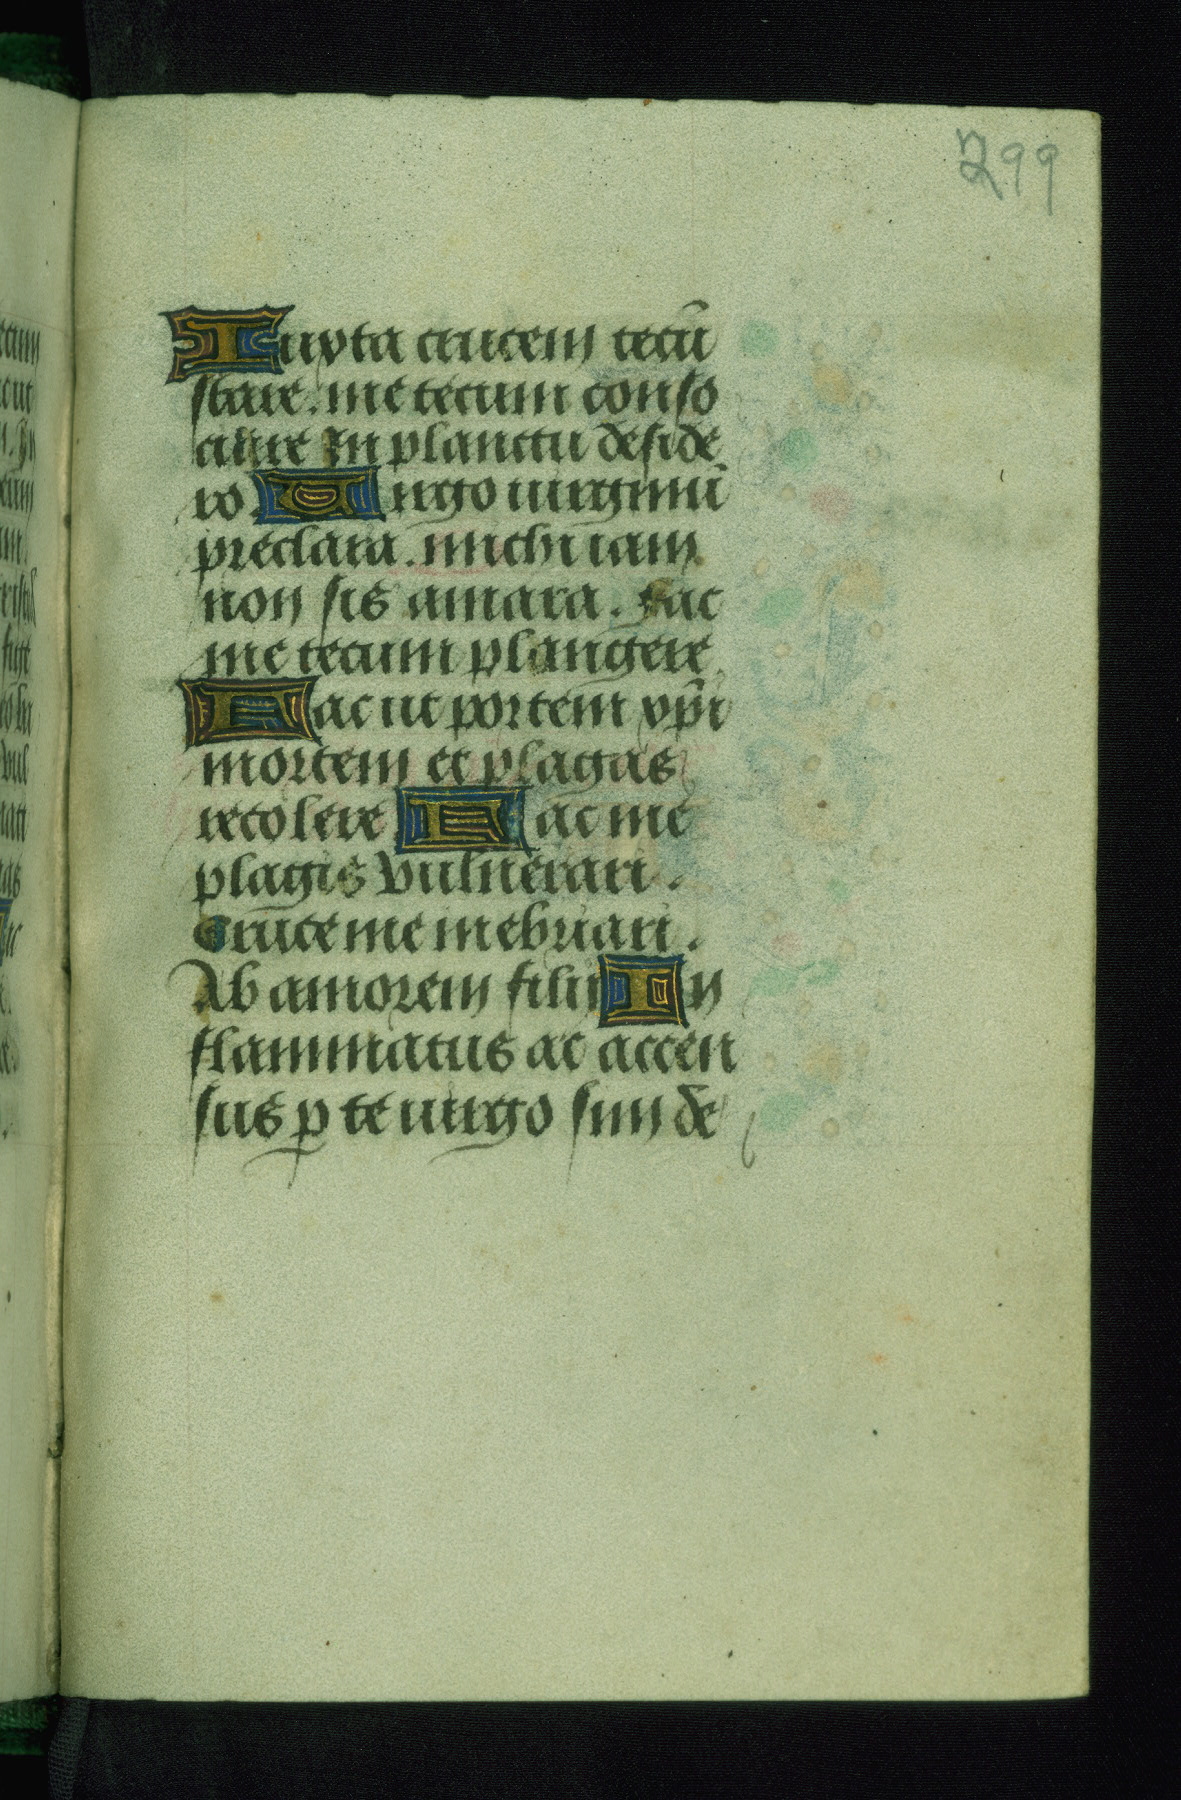 299
Iuxta crucem tecū
stare. me tecum conso
ciare In planctu deside
ro Uirgo uirginū
preclara. michi iam
non sis amara. Fac
me tecum plangere
Fac ut portem xp̄i
mortem et plagas
recolere Fac me
plagis vulnerari.
Cruce me inebriari.
Ab amorem filii In
flammatus ac accen
sus ꝑ te uirgo sim de